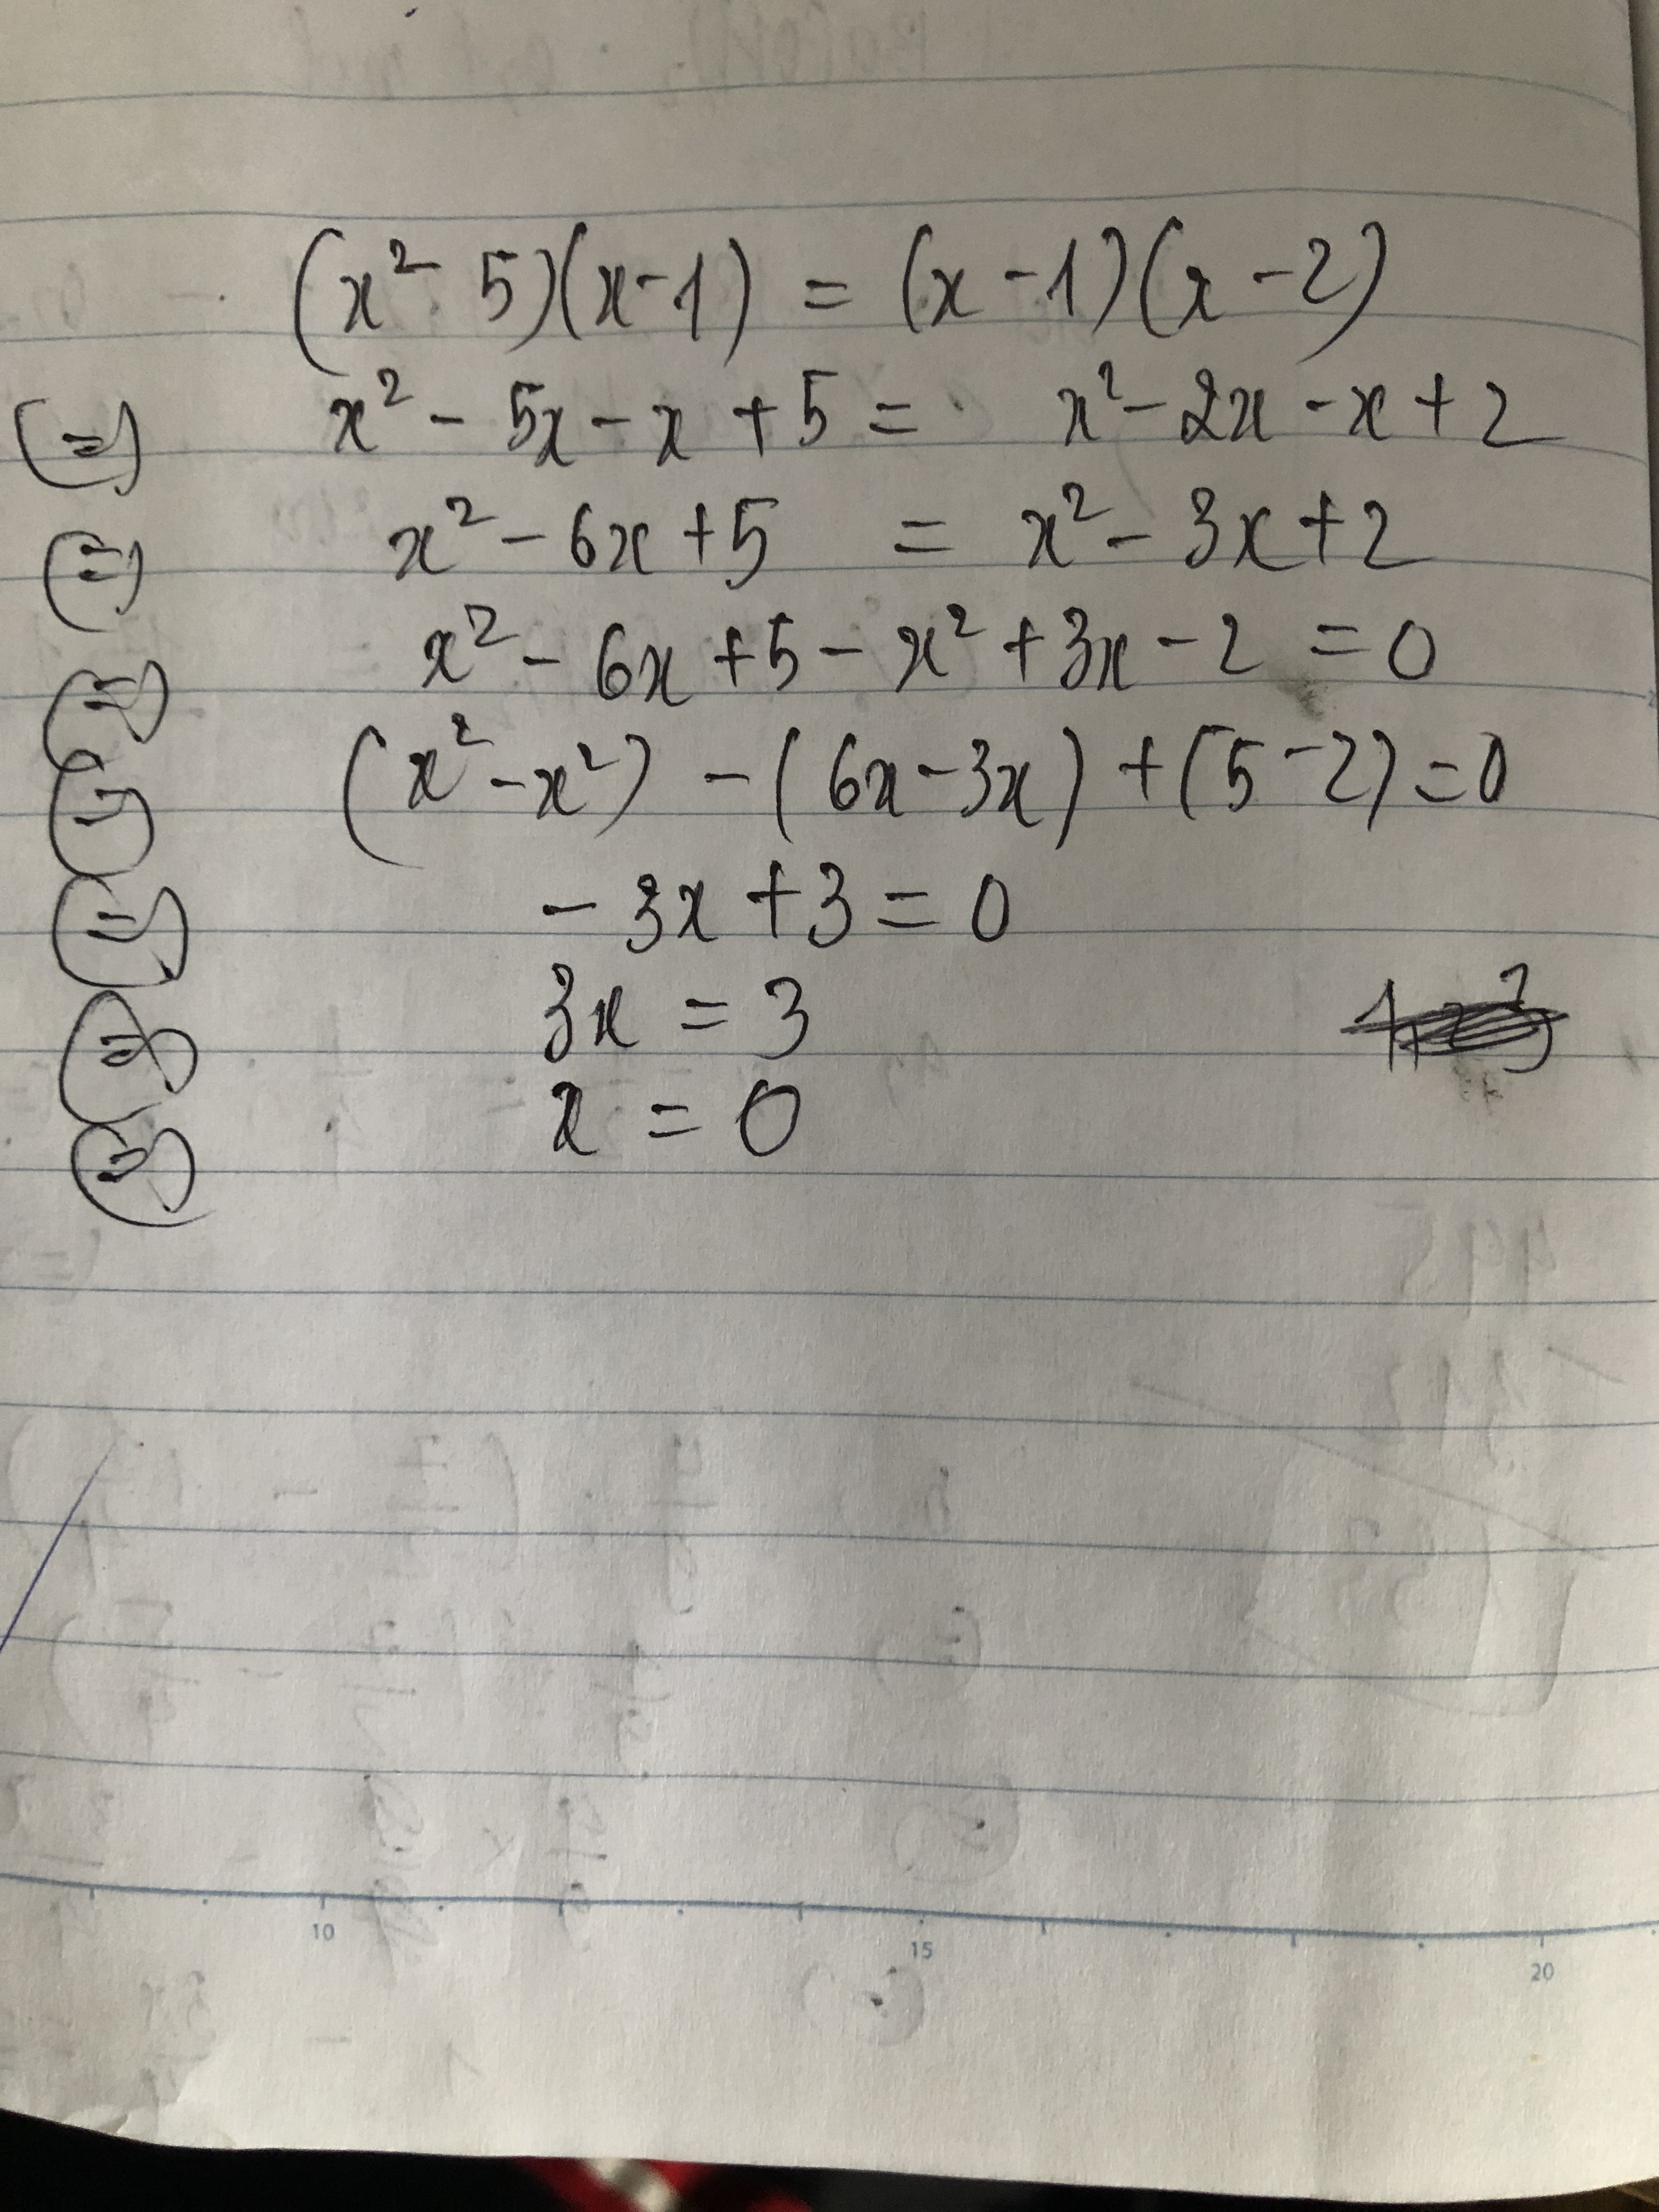 (x² - 5)(x - 1) = (x - 1)(x - 2)
(=) x² - 5x - x + 5 = x² - 2x - x + 2
(=) x² - 6x + 5 = x² - 3x + 2
(=) x² - 6x + 5 - x² + 3x - 2 = 0
(=) (x² - x²) - (6x - 3x) + (5 - 2) = 0
(=) - 3x + 3 = 0
(=) 3x = 3
(=) x = 0
10 15 20